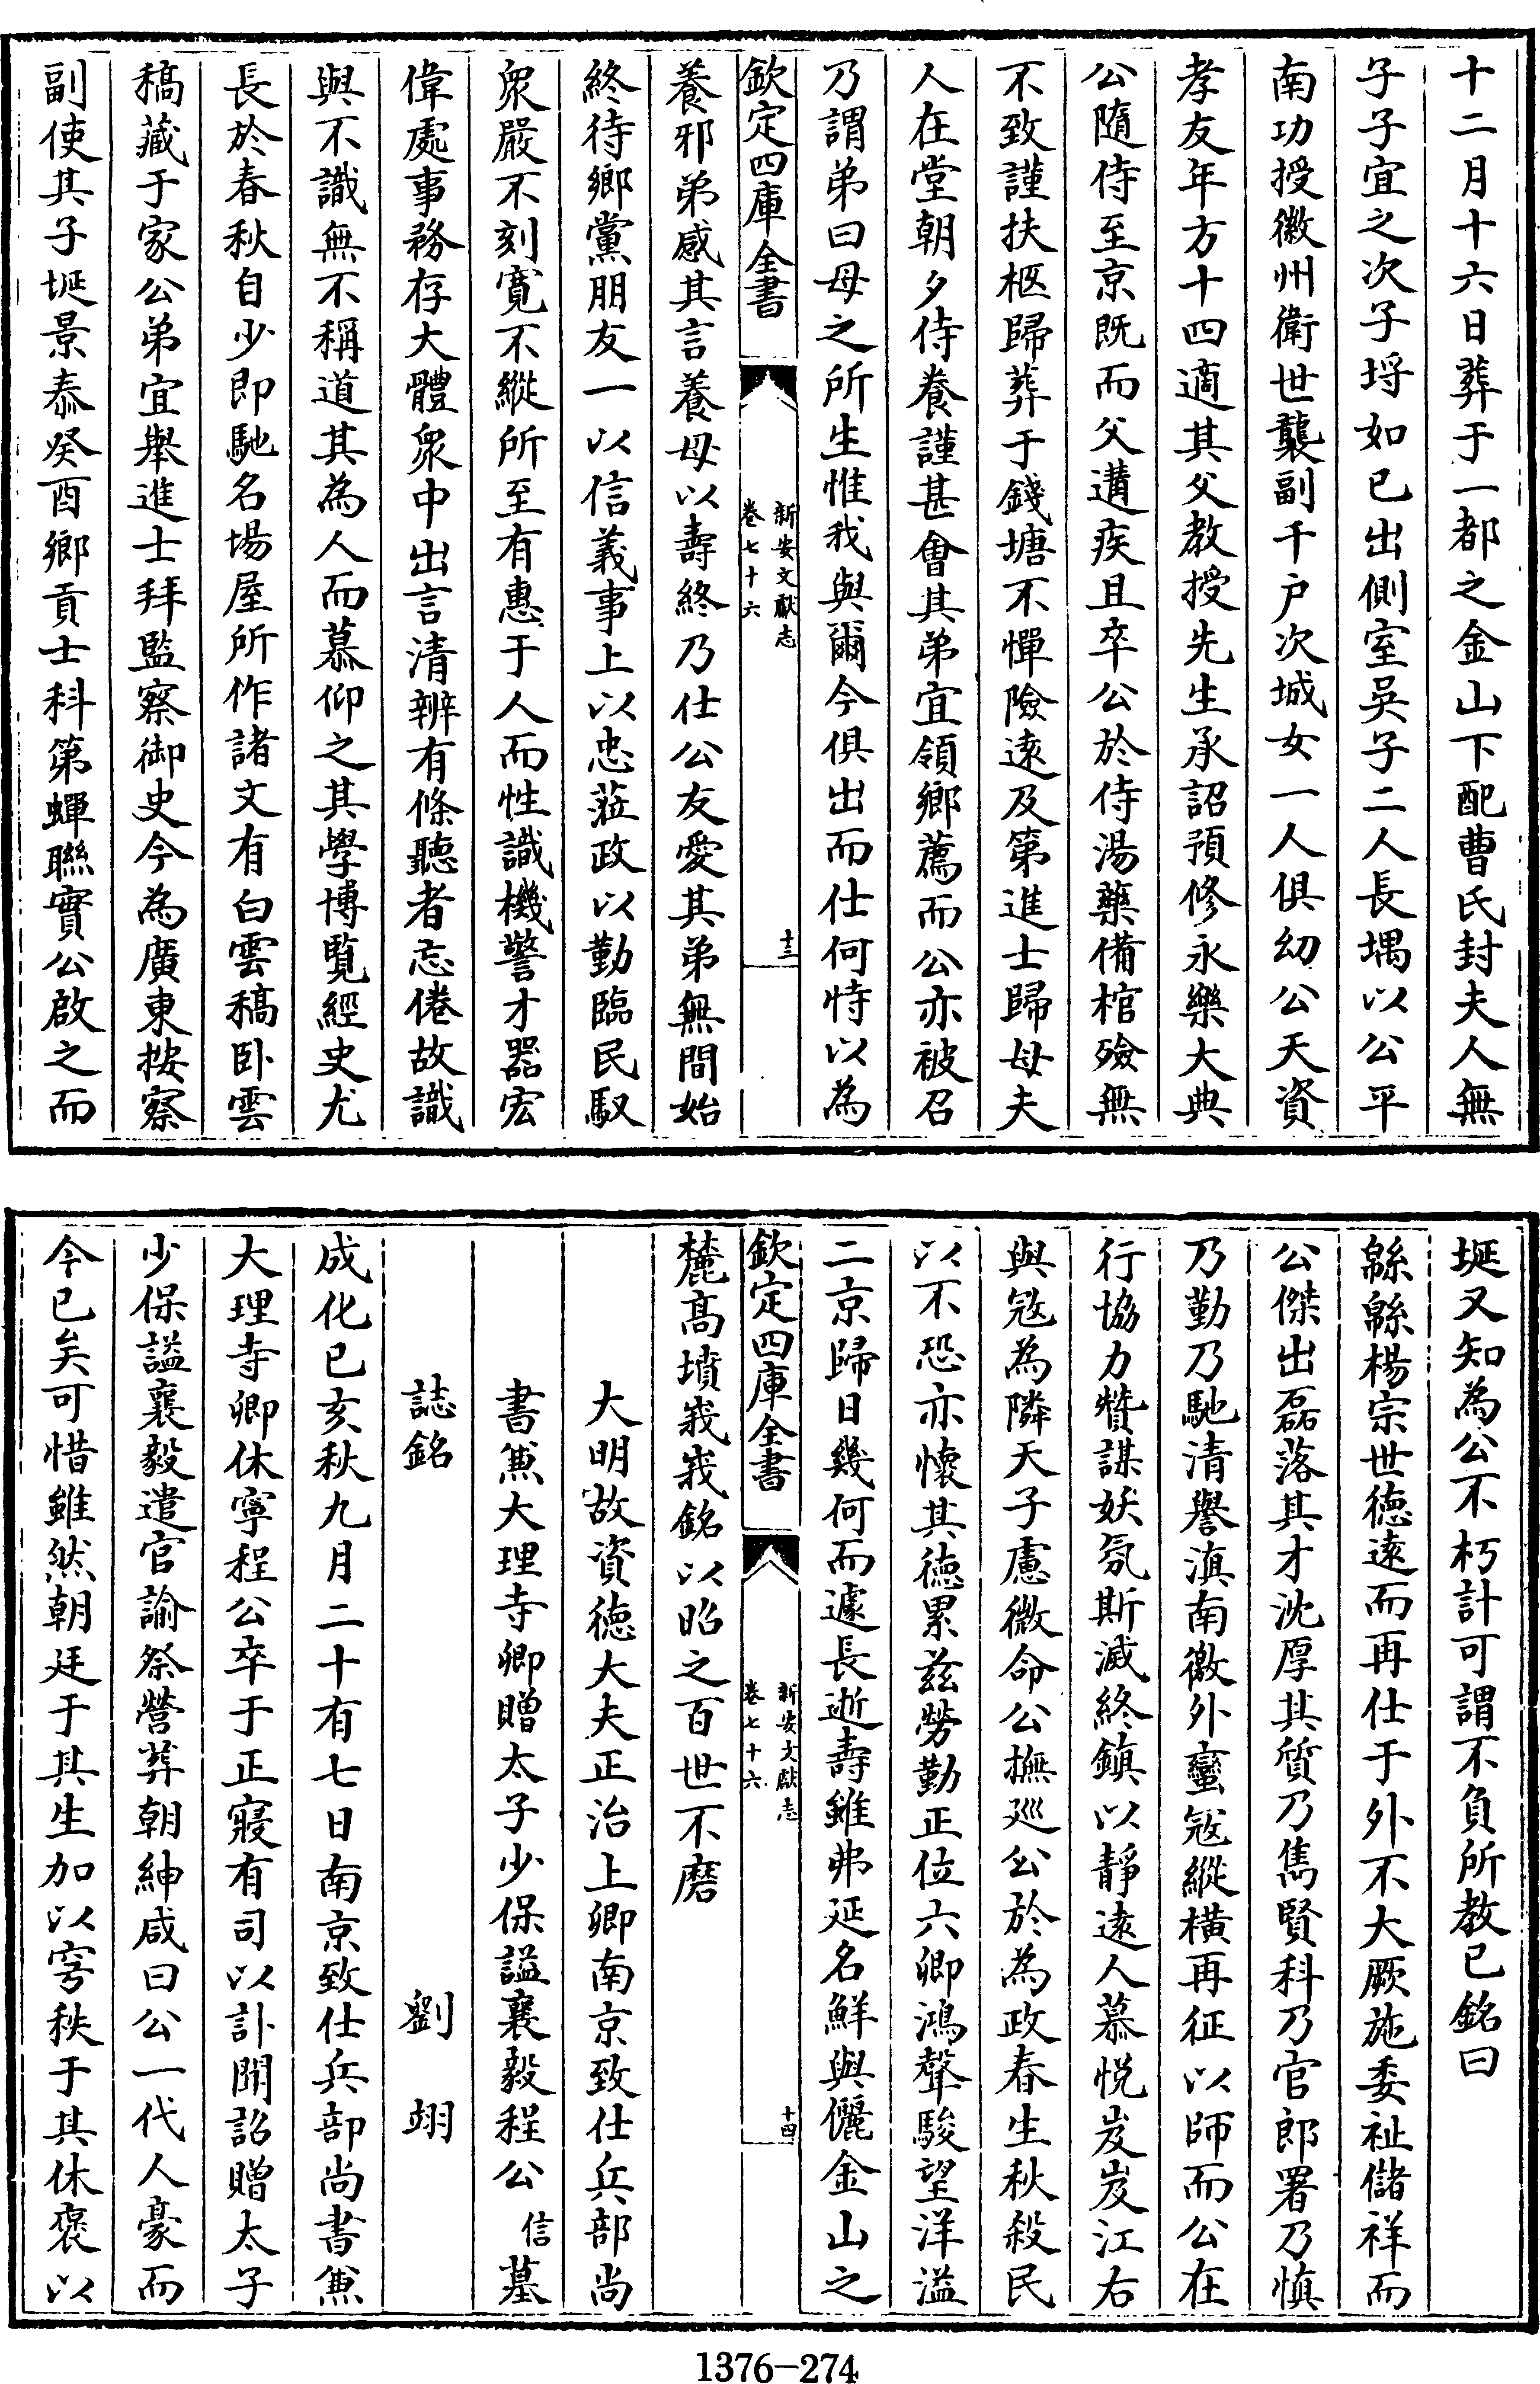 十二月十六日葬于一都之金山下配曹氏封夫人無
子子宜之次子埒如已出側室吳子二人長堣以公平
南功授徽州衛世襲副千户次城女一人俱幼公天資
孝友年方十四適其父教授先生承詔預修永樂大典
公隨侍至京既而父遘疾且卒公於侍湯藥備棺殮無
不致謹扶柩歸葬于錢塘不憚險逺及第進士歸母夫
人在堂朝夕侍養謹甚會其弟宜領鄉薦而公亦被召
乃謂弟曰母之所生惟我與爾今俱出而仕何恃以為
欽定四庫全書
新安文獻志
卷七十六
十三
養邪弟感其言養母以壽終乃仕公友愛其弟無間始
終待鄉黨朋友一以信義事上以忠蒞政以勤臨民馭
衆嚴不刻寛不縱所至有惠于人而性識機警才器宏
偉處事務存大體衆中出言清辨有條聽者忘倦故識
與不識無不稱道其為人而慕仰之其學博覽經史尤
長於春秋自少即馳名場屋所作諸文有白雲稿卧雲
稿藏于家公弟宜舉進士拜監察御史今為廣東按察
副使其子埏景泰癸酉鄉貢士科第蟬聯實公啟之而
埏又知為公不朽計可謂不負所教已銘曰
緜緜楊宗世徳逺而再仕于外不大厥施委祉儲祥而
公傑出磊落其才沈厚其質乃雋賢科乃官郎署乃慎
乃勤乃馳清譽滇南徼外蠻冦縱横再征以師而公在
行協力贊謀妖氛斯滅終鎮以靜逺人慕悦岌岌江右
與冦為隣天子慮微命公撫巡公於為政春生秋殺民
以不恐亦懷其徳累兹勞勤正位六卿鴻聲駿望洋溢
二京歸日幾何而遽長逝壽雖弗延名鮮與儷金山之
欽定四庫全書
新安文獻志
卷七十六
十四
麓髙墳峩峩銘以昭之百世不磨
大明故資徳大夫正治上卿南京致仕兵部尚
書兼大理寺卿贈太子少保謚襄毅程公信墓
誌銘　劉　翊
成化已亥秋九月二十有七日南京致仕兵部尚書兼
大理寺卿休寧程公卒于正寢有司以訃聞詔贈太子
少保謚襄毅遣官諭祭營葬朝紳咸曰公一代人豪而
今已矣可惜雖然朝廷于其生加以穹秩于其休褒以
1376-274